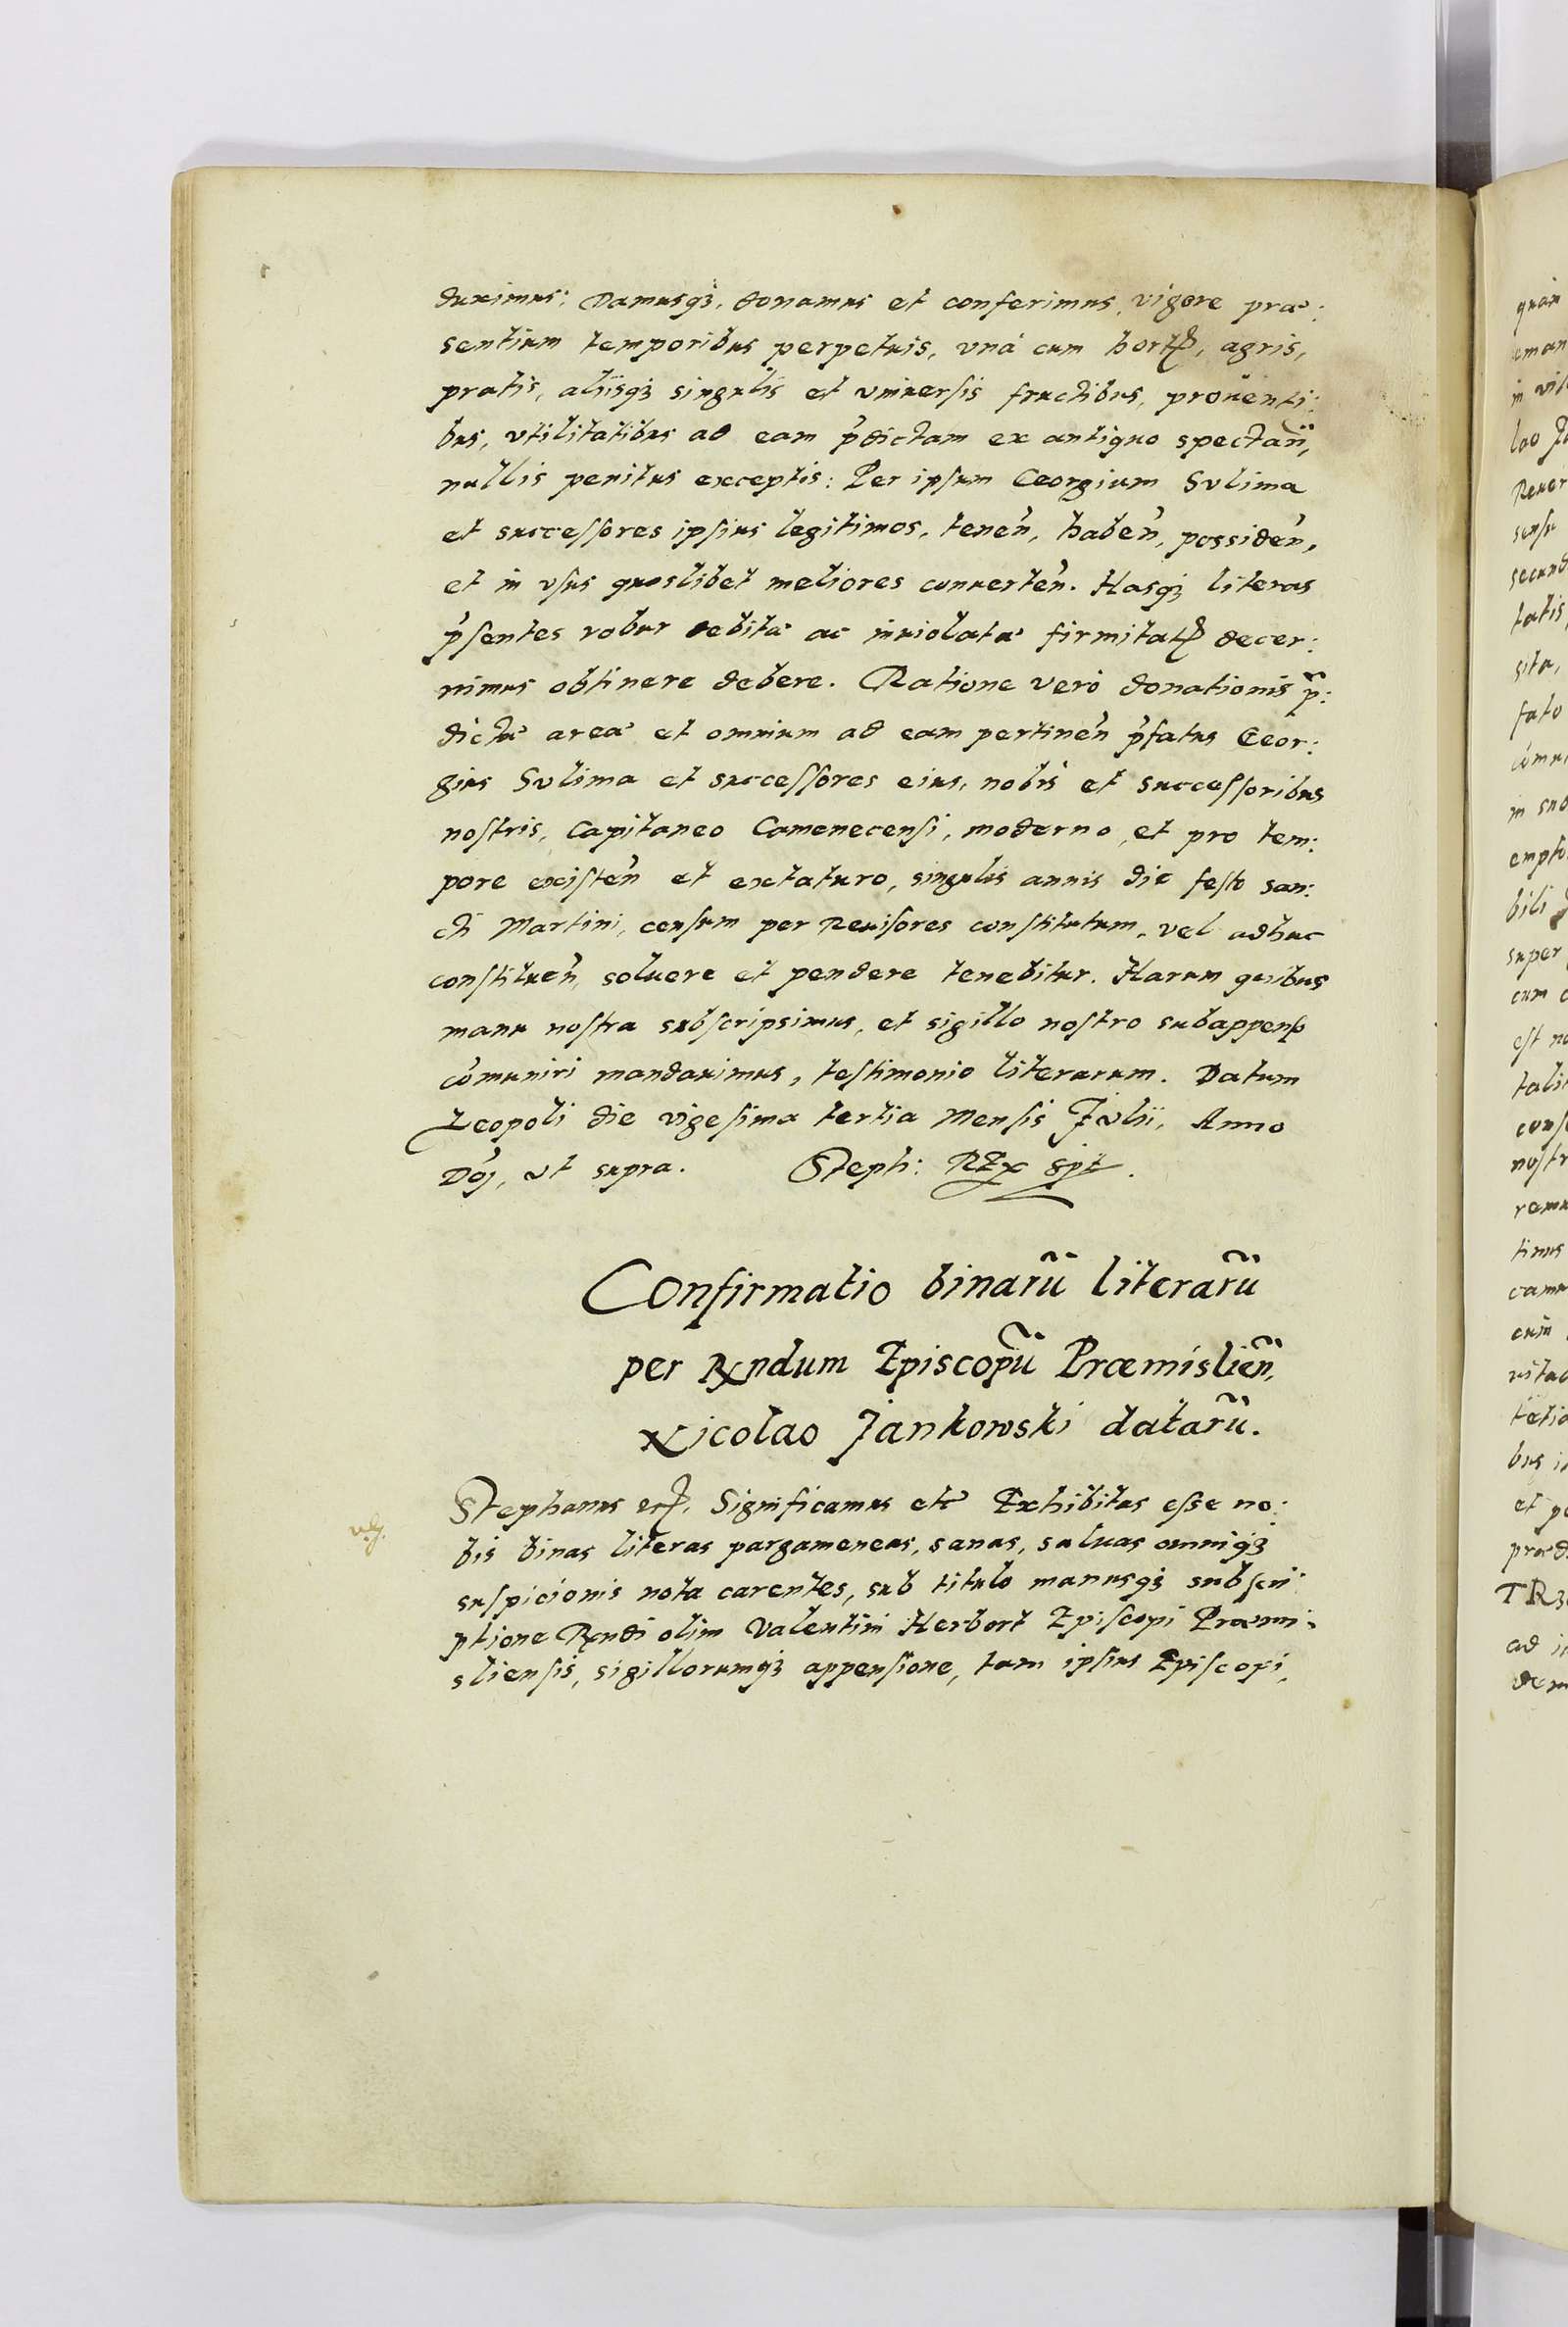 duximus: Damusqꝫ, donamus et conferimus, vigore præ:
sentium temporibus perpetuis, vná cum hortꝭ, agris,
pratis, aliisqꝫ singulis et vniuersis fructibus, prouenti:
bus, vtilitatibus ad eam p̃dictam ex antiquo spectañ,
nullis penitus exceptis: Per ipsum Georgium Sulima
et successores ipsius legitimos, teneñ, habeñ, possideñ,
et in vsus quoslibet meliores conuerteñ. Hasqꝫ literas
p̃sentes robur debitæ ac inuiolatæ firmitatꝭ decer:
nimus obtinere debere. Ratione veró donationis p̃:
dictæ areæ et omnium ad eam pertineñ p̃fatus Geor:
gius Sulima et successores eius, nobis et successoribus
nostris, Capitaneo Camenecensi, moderno, et pro tem:
pore existeñ et extaturo, singulis annis die festo san:
cti Martini, censum per Reuisores constitutum, vel adhuc
constitueñ, soluere et pendere tenebitur. Harum quibus
manu nostra subscripsimus, et sigillo nostro subappenso
cõmuniri mandauimus, testimonio literarum. Datum
Leopoli die vigesima tertia Mensis Julii, Anno
Dñj, vt supra. Steph: REx sst.
Confirmatio binarũ literarũ
per Rndum Episcopũ Præmislieñ,
Nicolao Jankowski datarũ.
Stephanus etc. Significamus etc Exhibitas esse no:
bis binas literas pargameneas, sanas, saluas omniqꝫ
suspicionis nota carentes, sub titulo manusqꝫ subscri
ptione Rndi olim Valentini Herbort Episcopi Præmi:
sliensis, sigillorumqꝫ appensione, tam ipsius Episcopi,